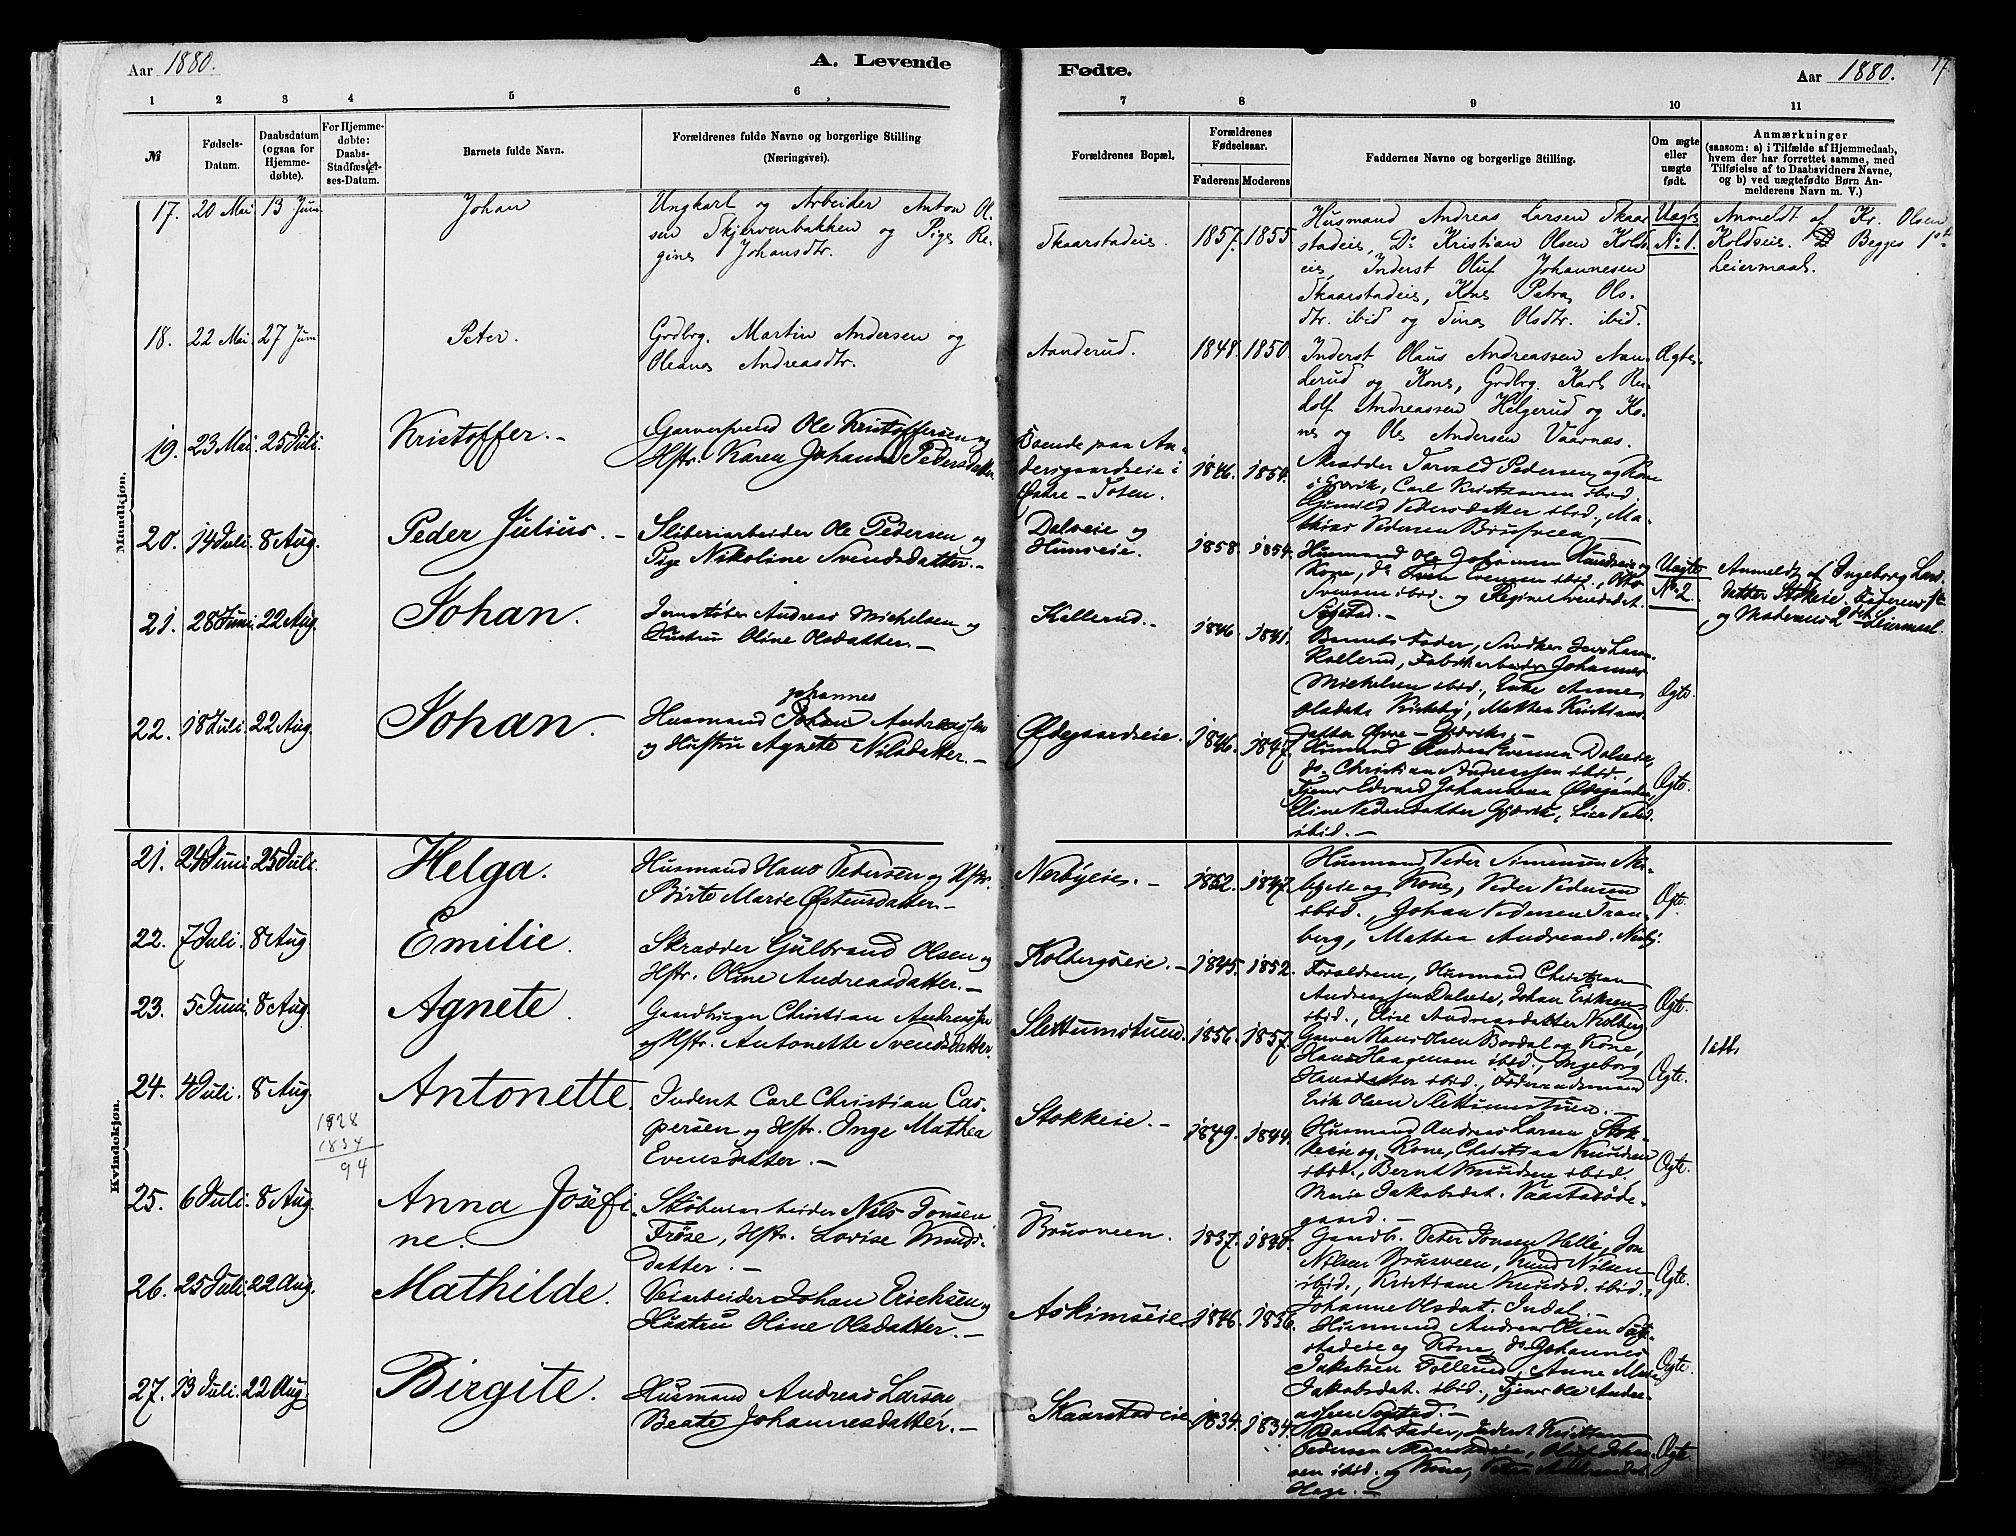 Aar 1880. A. Levende
Fødte. Aar 1880. 17.
1 2 3 4 5 6 7 8 9 10 11
№
Fødsels-
Datum.
Daabsdatum
(ogsaa for
Hjemme-
døbte).
For Hjemme-
døbte:
Daabs-
Stadfæstel-
ses-Datum.
Barnets fulde Navn.
Forældrenes fulde Navne og borgerlige Stilling
(Næringsvei).
Forældrenes Bopæl.
Forældrenes
Fødselsaar.
Faderens Moderens
Faddernes Navne og borgerlige Stilling.
Om ægte
eller
uægte
født.
Anmærkninger
(saasom: a) i Tilfælde af Hjemmedaab,
hvem der har forrettet samme, med
Tilføielse af to Daabsvidners Navne,
og b) ved uægtefødte Børn An-
melderens Navn m. V.)
Mandkjøn.
17. 20 Mai 13 Juni Johan
Ungkarl og Arbeider Anton Ol-
sen Skjervenbakken og Pige Re-
gine Johansdtr.
Skaarstadeie. 1857. 1855.
Husmand Andreas Larsen Skaar-
stadeie, Do Kristian Olsen Kolds-
eie, Inderst Oluf Johannesen
Skaarstadeie, Kone Petra Ols-
dtr. ibid og Tina Olsdtr. ibid.
Uægte
No 1.
Anmeldt af Kr. Olsen
Koldseie. Begges 1ste
Leiermaal.
18. 22 Mai 27 Juni Peter.
Grdbrg. Martin Andersen og
Oleana Andreasdtr.
Aanderud. 1848. 1850.
Inderst Olaus Andreassen Aan-
derud og Kone, Grdbrg. Karl Ru-
dolf Andreassen Helgerud og Ko-
ne og Ole Andersen Vaarnæs.
Ægte.
19. 23 Mai 25 Juli. Kristoffer. -
Garversvend Ole Kristoffersen og
Hstr. Karen Johanne Pedersdatter
Boende paa An-
dersgaardseie i
Østre-Toten.
1846. 1854.
Skrædder Torvald Pedersen og Kone
i Gjøvik, Carl Kristiansen ibid.
Gunild Pedersdatter ibid., Ma-
thias Pedersen Brusveen
20. 14 Juli. 8 Aug. Peder Julius. -
Sliberiarbeider Ole Pedersen og
Pige Nikoline Svendsdatter. -
Dalseie og
Hunseie.
1858. 1854.
Husmand Ole Johansen Hunseie og
Kone, do Even Evensen ibid., Otto
Svensen ibid. og Regine Svendsdat.
Sogstad. -
Uægte
No. 2.
Anmeldt af Ingeborg Lars-
datter Stokeie, Faderens 1ste
og Moderens 2det Leiermaal.
21. 28 Juni 22 Aug. Johan.
Jernstøber Andreas Michelsen og
Hustru Oline Olsdatter. -
Kallerud. - 1846. 1841.
Barnets Fader, Snedker Jens Lars.
Kallerud, Fabrikarbeider Johannes
Michelsen ibid., Enke Anne
Olsdatr. Kirkeby, Mathea Kristians-
datter Øvre-Gjøvik. -
Ægte.
22. 18 Juli. 22 Aug. Johan.
johannes
Husmand Johan Andreassen
og Hustru Agnete Nilsdatter. -
Ødegaardseie. 1846. 1847.
Husmand Andreas Evensen Dalseie,
do. Christian Andreassen ibid.,
Tjener Edvard Johannesen Ødegaarden,
Eline Pedersdatter Gjøvik, Lise
ibid. -
Ægte.
Kvindekjøn.
21. 24 Juni 25 Juli. Helga.
Husmand Hans Pedersen og Hstr.
Birte Marie Østensdatter. -
Nerbyeie. - 1852. 1847.
Husmand Peder Simensen Ner-
byeie og Kone, Peder Pedersen
ibid., Johan Pedersen Tran-
berg, Mathea Andreasd. Nerby.
Ægte.
22. 7 Juli. 8 Aug. Emilie.
Skrædder Gulbrand Olsen og
Hstr. Oline Andreasdatter. -
Kolbergseie. - 1845. 1852.
Forældrene, Husmand Christian
Andreassen Dalseie, Johan Eriksen
ibid., Elise Andreasdatter Kolberg.
Ægte.
23. 5 Juni 8 Aug. Agnete.
Gaardbruger Christian Andreassen
og Hstr. Antonette Svendsdatter.
Slettumstuen. 1856. 1857.
Garver Hans Olsen Bondal og Kone,
Hans Haagensen ibid., Ingeborg
Hansdatter ibid., Føderaadsmand
Erik Olsen Slettumstuen. -
Ægte. 1 att.
24. 4 Juli. 8 Aug. Antonette.
Inderst Carl Christian Cas-
persen og Hstr. Inge Mathea
Evensdatter. -
Stokkeie. - 1849. 1844.
Husmand Andreas Larsen Stok-
keie og Kone, Christian Knudsen
ibid., Bernt Knudsen ibid.,
Marie Jakobsdat. Paastadøde-
gaard. -
Ægte.
1928
1834
94
25. 6 Juli. 8 Aug. Anna Josefi-
ne.
Støberiarbeider Nils Jonsen
Frøse, Hstr. Lovise Knuds-
datter. -
Brusveen. 1837. 1840.
Gaardb. Peter Jonsen Helle, Jon
Nilsen Brusveen, Knud Nilsen
ibid., Kristiane Knudsd. ibid.,
Johanne Olsdat. Indal. -
Ægte.
26. 25 Juli. 22 Aug. Mathilde.
Veiarbeider Johan Ericksen og
Hustru Oline Olsdatter. -
Askimseie. 1846. 1836.
Husmand Andreas Olsen Sog-
stadeie og Kone, do Johannes
Jakobsen Tollerud, Anne Marie
Jakobsdat. ibid., Tjener Ole Andre-
assen Sogstad. -
Ægte.
27. 13 Juli. 22 Aug. Birgite.
Husmand Andreas Larsen
Beate Johannesdatter. -
Skaarstadeie 1834. 1834.
Barnets Fader, Inderst Kristian
Pedersen Skaarstadeie, Oluf Johan-
sen ibid. og Kone, Peter
Hage. -
Ægte.